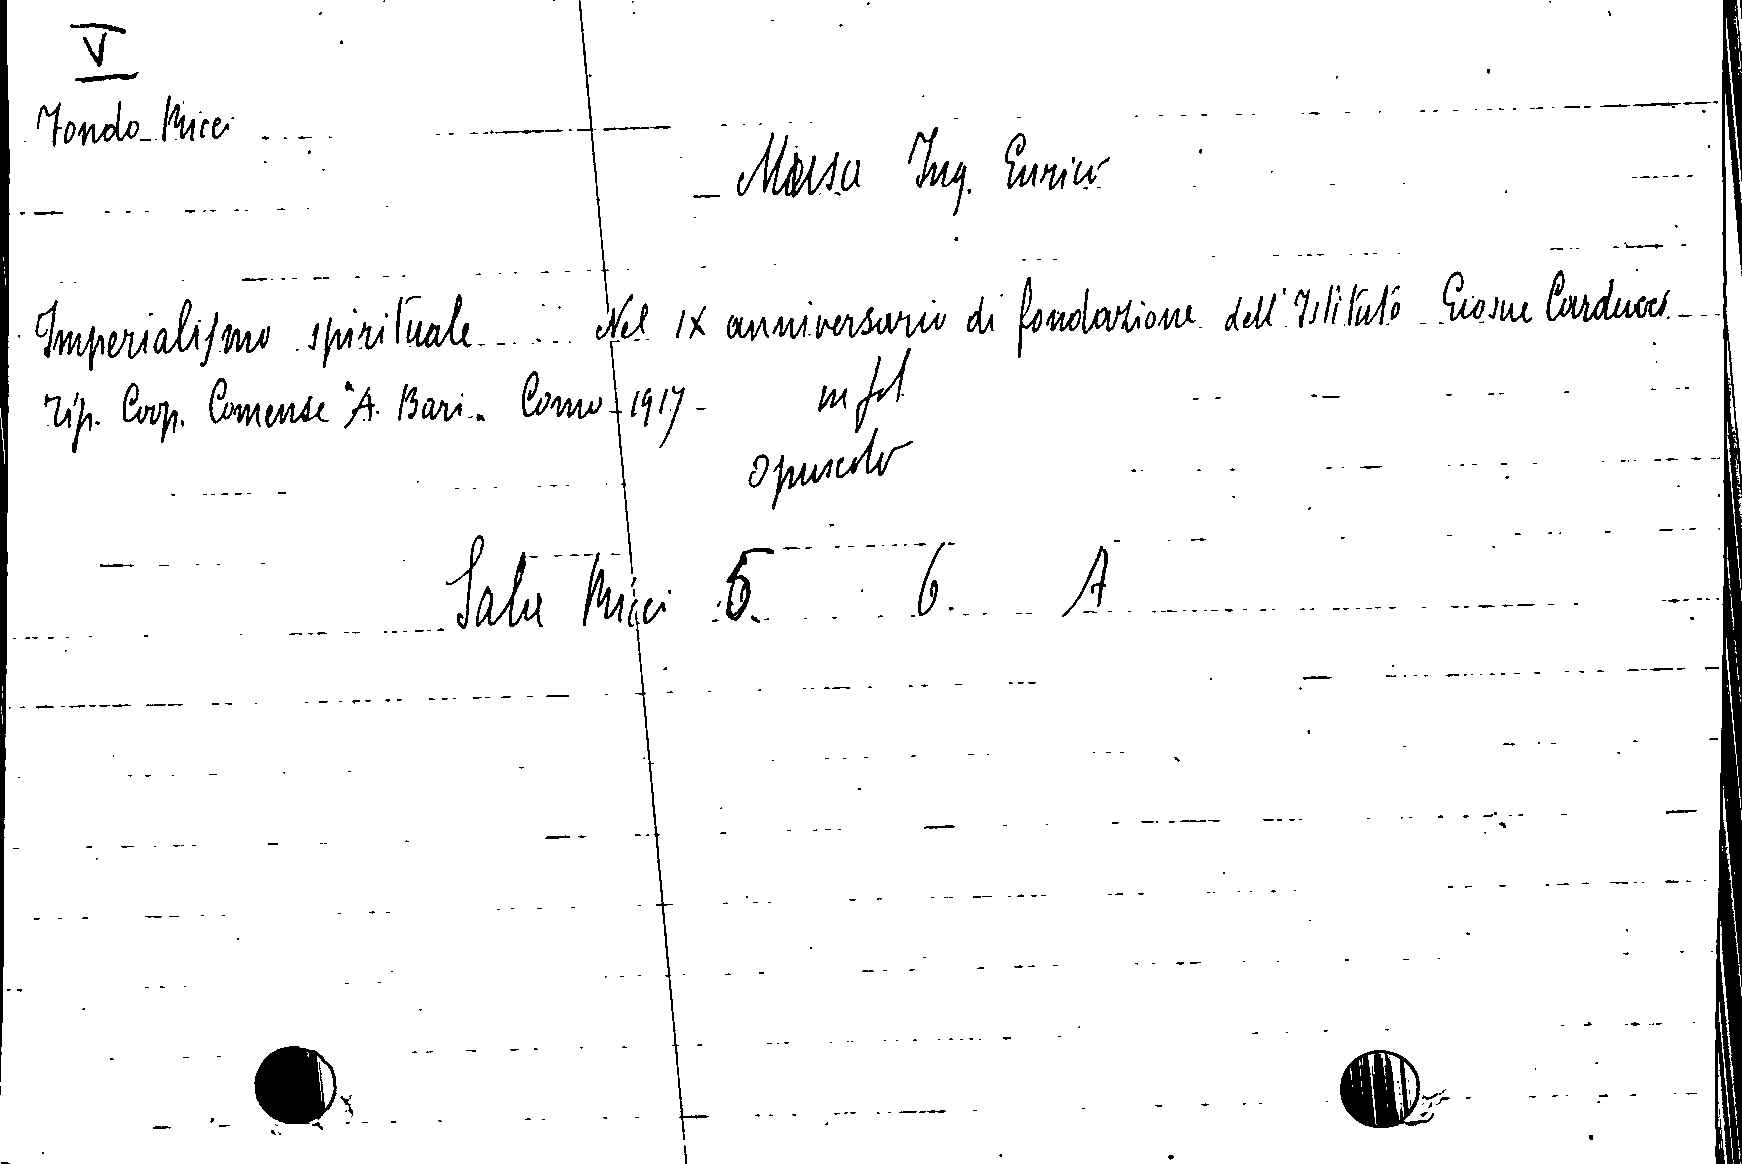 V
Fondo Ricci
Massa Ing. Enrico
Imperialismo spirituale Nel IX anniversario di fondazione dell'Istituto Giosue Carducci
Tip. Coop. Comense "A. Bari. Como 1917 in fol
opuscolo
Sala Ricci 5. 6. A